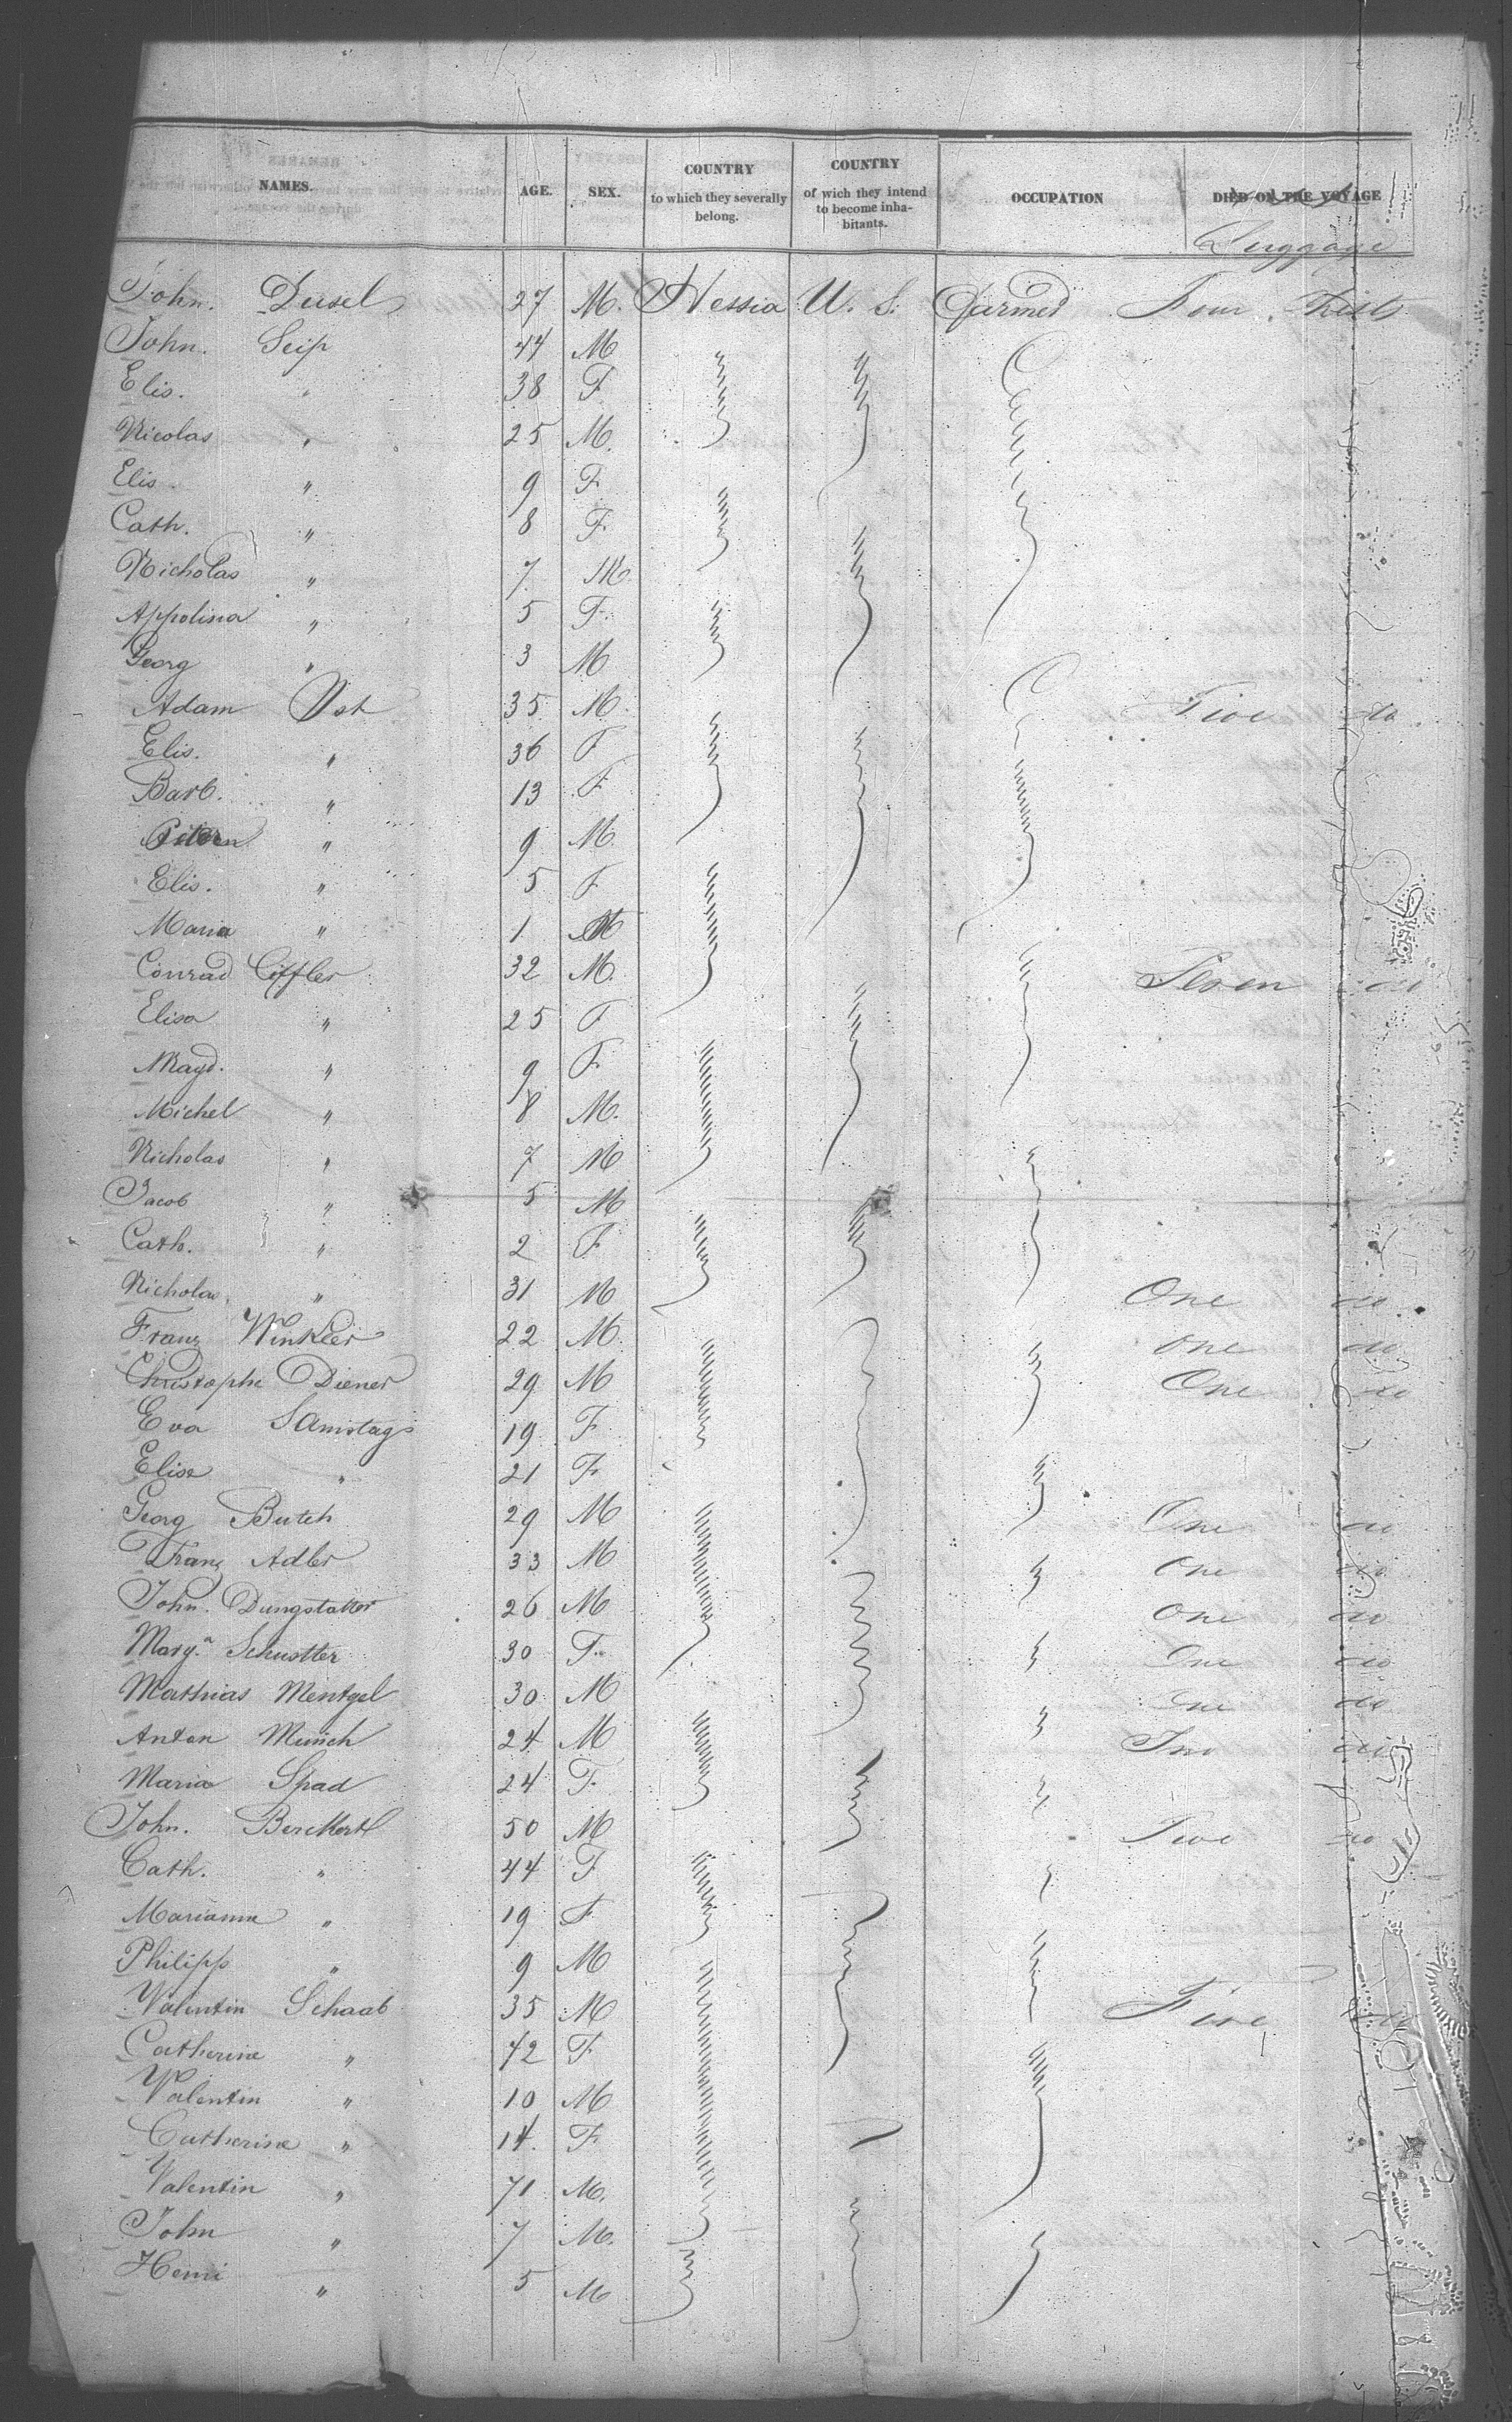 NAMES. AGE. SEX. COUNTRY to which they severally belong. COUNTRY of wich they intend to become inha-bitants. OCCUPATION DIED ON THE VOYAGE
Luggage
John. Deisel 27 M. Hessia U. S. Farmer Four Chists
John. Seip 44 M
Elis. " 38 F
Nicolas " 25 M.
Elis " 9 F
Cath. " 8 F
Nicholas " 7 M
Appolina " 5 F
Georg " 3 M
Adam Ost 35 M. Five do
Elis. " 36 F
Barb. " 13 F
" 9 M
Elis. " 5 F
Maria " 1 M
Conrad Ciffler 32 M. Seven do
Elisa " 25 F
Magd. " 9 F
Michel " 8 M.
Nicholas " 7 M
Jacob " 5 M
Cath. " 2 F
Nicholas " 31 M One do
Franz Winkler 22 M. One do
Christophe Diener 29 M One do
Eva Samstag 19 F
Elise " 21 F
Georg Butch 29 M One do
Franz Adler 33 M One do
John. Dungstatter 26 M One do
Marg.a Schustter 30 F. One do
Mathias Mentgel 30 M One do
Anton Munch 24 M do
Maria Spad 24 F
John. Berckert 50 M Two do
Cath. " 44 F
Marianna " 19 F
Philipp " 9 M
Valentin Schaab 35 M Five do
Catherine " 42 F
Valentin " 10 M
Catherine " 14 F
Valentin " 71 M.
John " 7 M.
Henri " 5 M